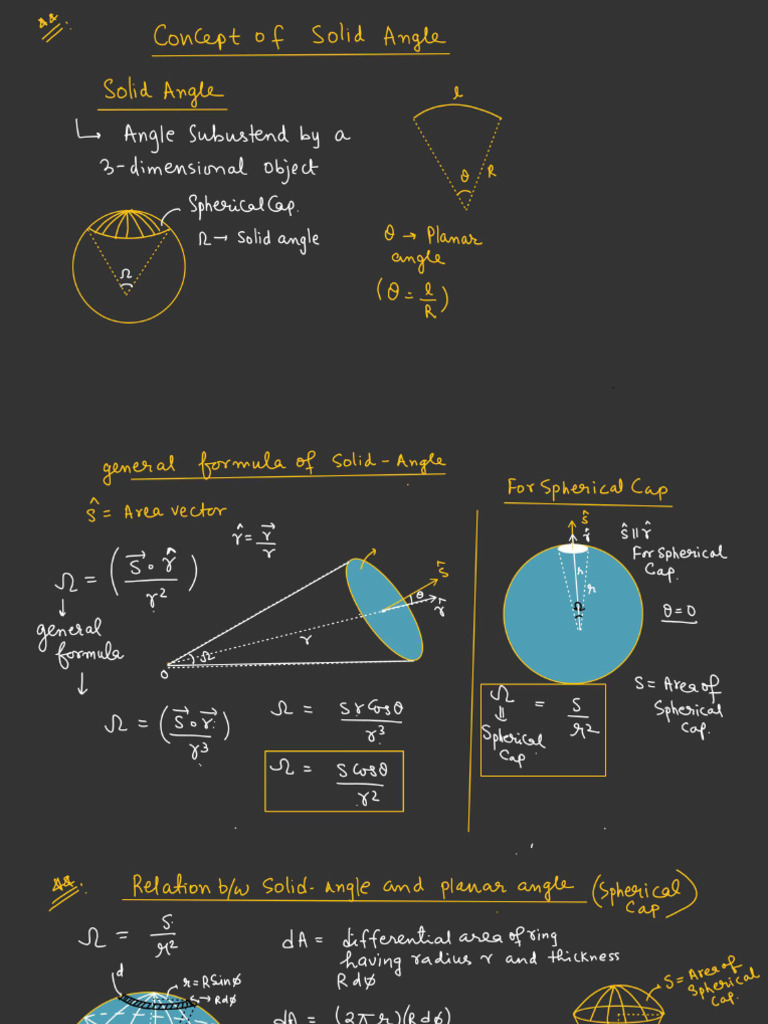 **.
Concept of Solid Angle
Solid Angle
↳ Angle Subustend by a
3-dimensional object
Spherical Cap.
Ω → Solid angle
Ω
l
θ
R
θ → Planar
angle
(θ = l/R)
general formula of Solid-Angle
ŝ = Area vector
r̂ = r⃗/r
Ω = (S⃗ · r̂ / r²)
↓
general
formula
↓
Ω = (S⃗ · r⃗ / r³)
O
Ω
r
θ
S⃗
r⃗
Ω = S r Cosθ / r³
Ω = S Cosθ / r²
For Spherical Cap
ŝ
r̂
r
r
Ω
ŝ || r̂
For Spherical
Cap.
θ = 0
Ω = S / r²
⇓
Spherical
Cap
S = Area of
Spherical
Cap.
**.
Relation b/w Solid-Angle and planar angle (Spherical
Cap)
Ω = S / r²
dA = differential area of ring
having radius r and thickness
Rdϕ
d
r = RSinϕ
→ Rdϕ
dA = (2πr)(Rdϕ)
S = Area of
Spherical
Cap.